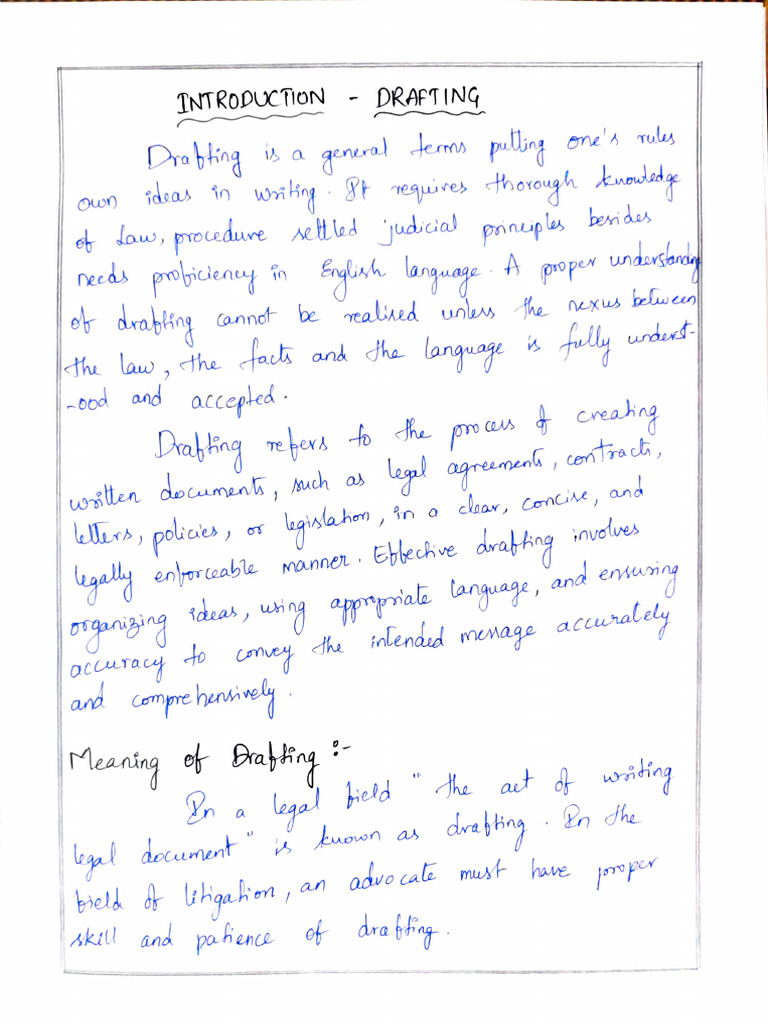 INTRODUCTION - DRAFTING
Drafting is a general terms putting one's rules
own ideas in writing. It requires thorough knowledge
of Law, procedure settled judicial principles besides
needs proficiency in English language. A proper understanding
of drafting cannot be realised unless the nexus between
the law, the facts and the language is fully underst-
-ood and accepted.
Drafting refers to the process of creating
written documents, such as legal agreements, contracts,
letters, policies, or legislation, in a clear, concise, and
legally enforceable manner. Effective drafting involves
organizing ideas, using appropriate language, and ensuring
accuracy to convey the intended message accurately
and comprehensively.
Meaning of Drafting :-
In a legal field "the act of writing
legal document" is known as drafting. In the
field of litigation, an advocate must have proper
skill and patience of drafting.